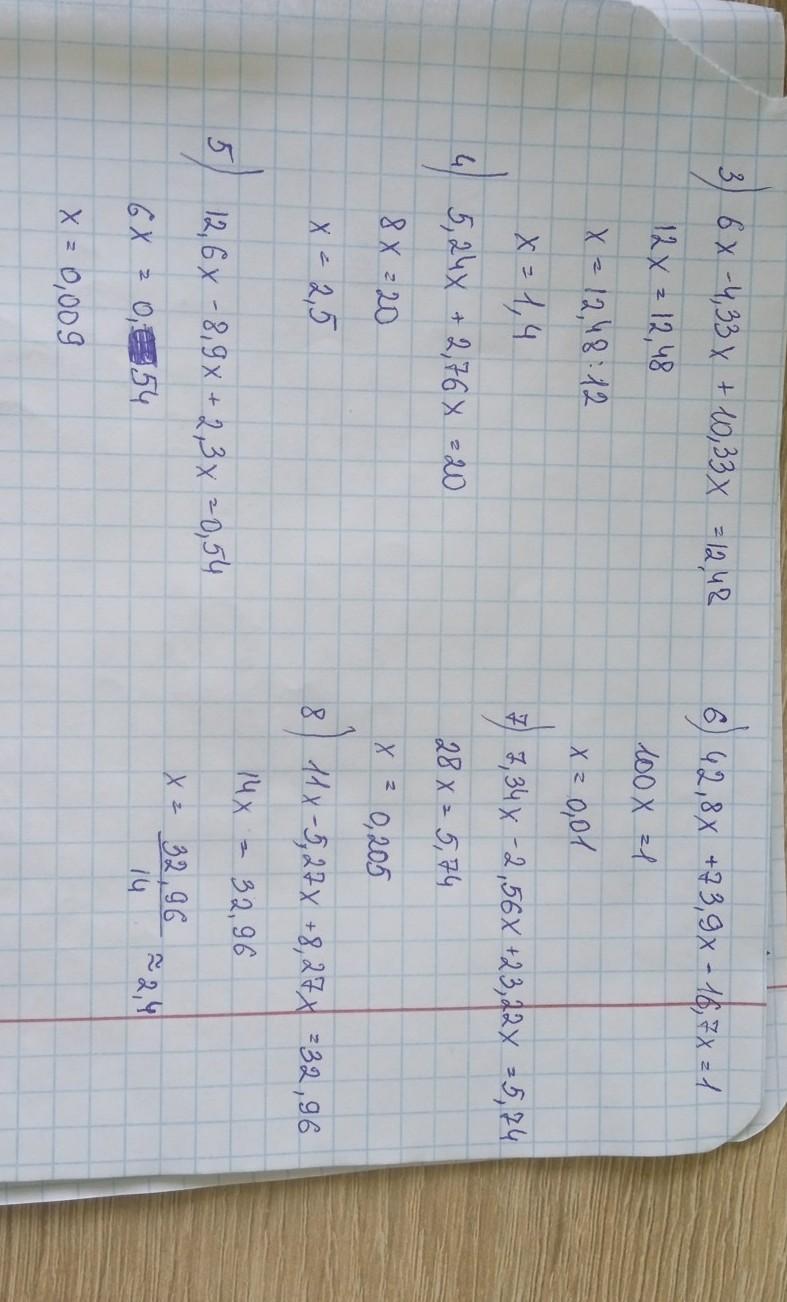 3) 6x - 4,33x + 10,33x = 12,48
12x = 12,48
x = 12,48 : 12
x = 1,4
4) 5,24x + 2,76x = 20
8x = 20
x = 2,5
5) 12,6x - 8,9x + 2,3x = 0,54
6x = 0,54
x = 0,009
6) 42,8x + 73,9x - 16,7x = 1
100x = 1
x = 0,01
7) 7,34x - 2,56x + 23,22x = 5,74
28x = 5,74
x = 0,205
8) 11x - 5,27x + 8,27x = 32,96
14x = 32,96
x = 32,96/14 ≈ 2,4